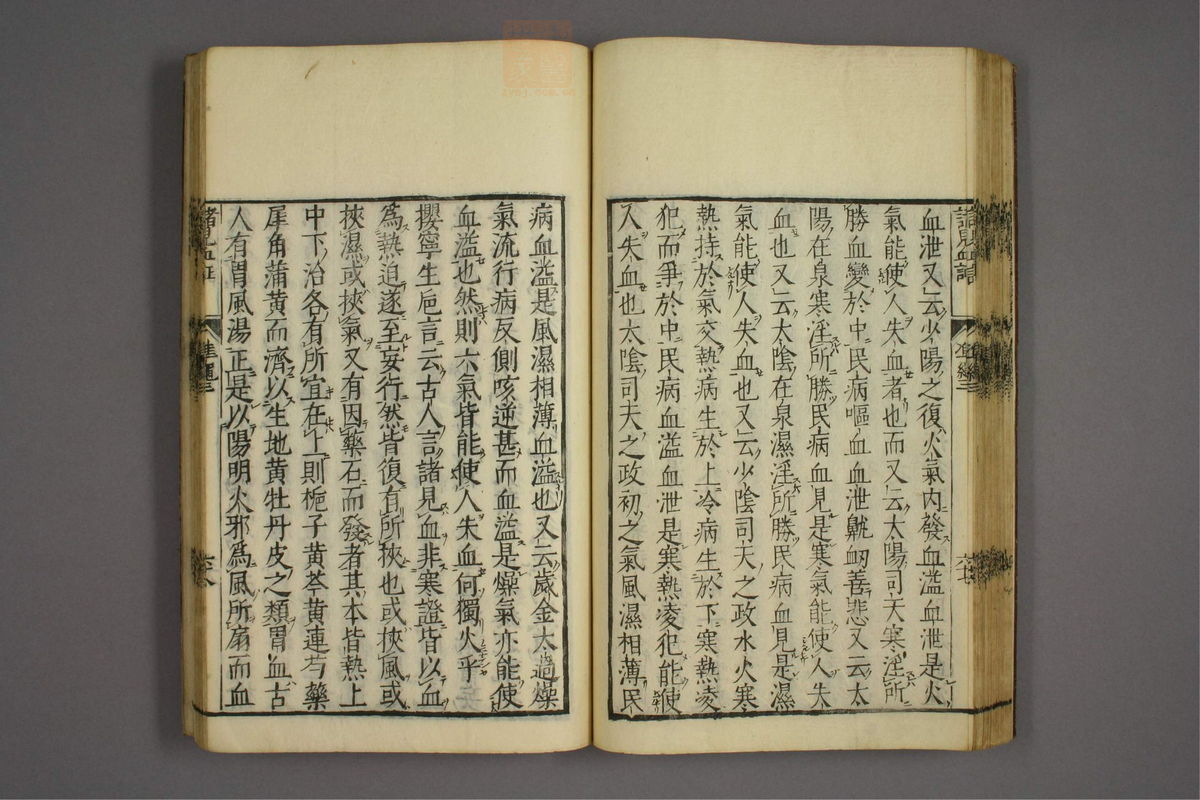 血泄又云少陽之復火氣內發血溢血泄是火
氣能使人失血者也而又云太陽司天寒淫所
勝血變於中民病嘔血血泄鼽衂善悲又云太
陽在泉寒淫所勝民病血見是寒氣能使人失
血也又云太陰在泉濕淫所勝民病血見是濕
氣能使人失血也又云少陰司天之政水火寒
熱持於氣交熱病生於上冷病生於下寒熱凌
犯而爭於中民病血溢血泄是寒熱凌犯能使
人失血也太陰司天之政初之氣風濕相薄民
病血溢是風濕相薄血溢也又云歲金太過燥
氣流行病反側咳逆甚而血溢是燥氣亦能使
血溢也然則六氣皆能使人失血何獨火乎
攖寧生巵言云古人言諸見血非寒證皆以血
為熱迫遂至妄行然皆復有所挾也或挾風或
挾濕或挾氣又有因藥石而發者其本皆熱上
中下治各有所宜在上則梔子黃芩黃連芍藥
犀角蒲黃而濟以生地黃牡丹皮之類胃血古
人有胃風湯正是以陽明火邪為風所扇而血
諸見血證
準繩三